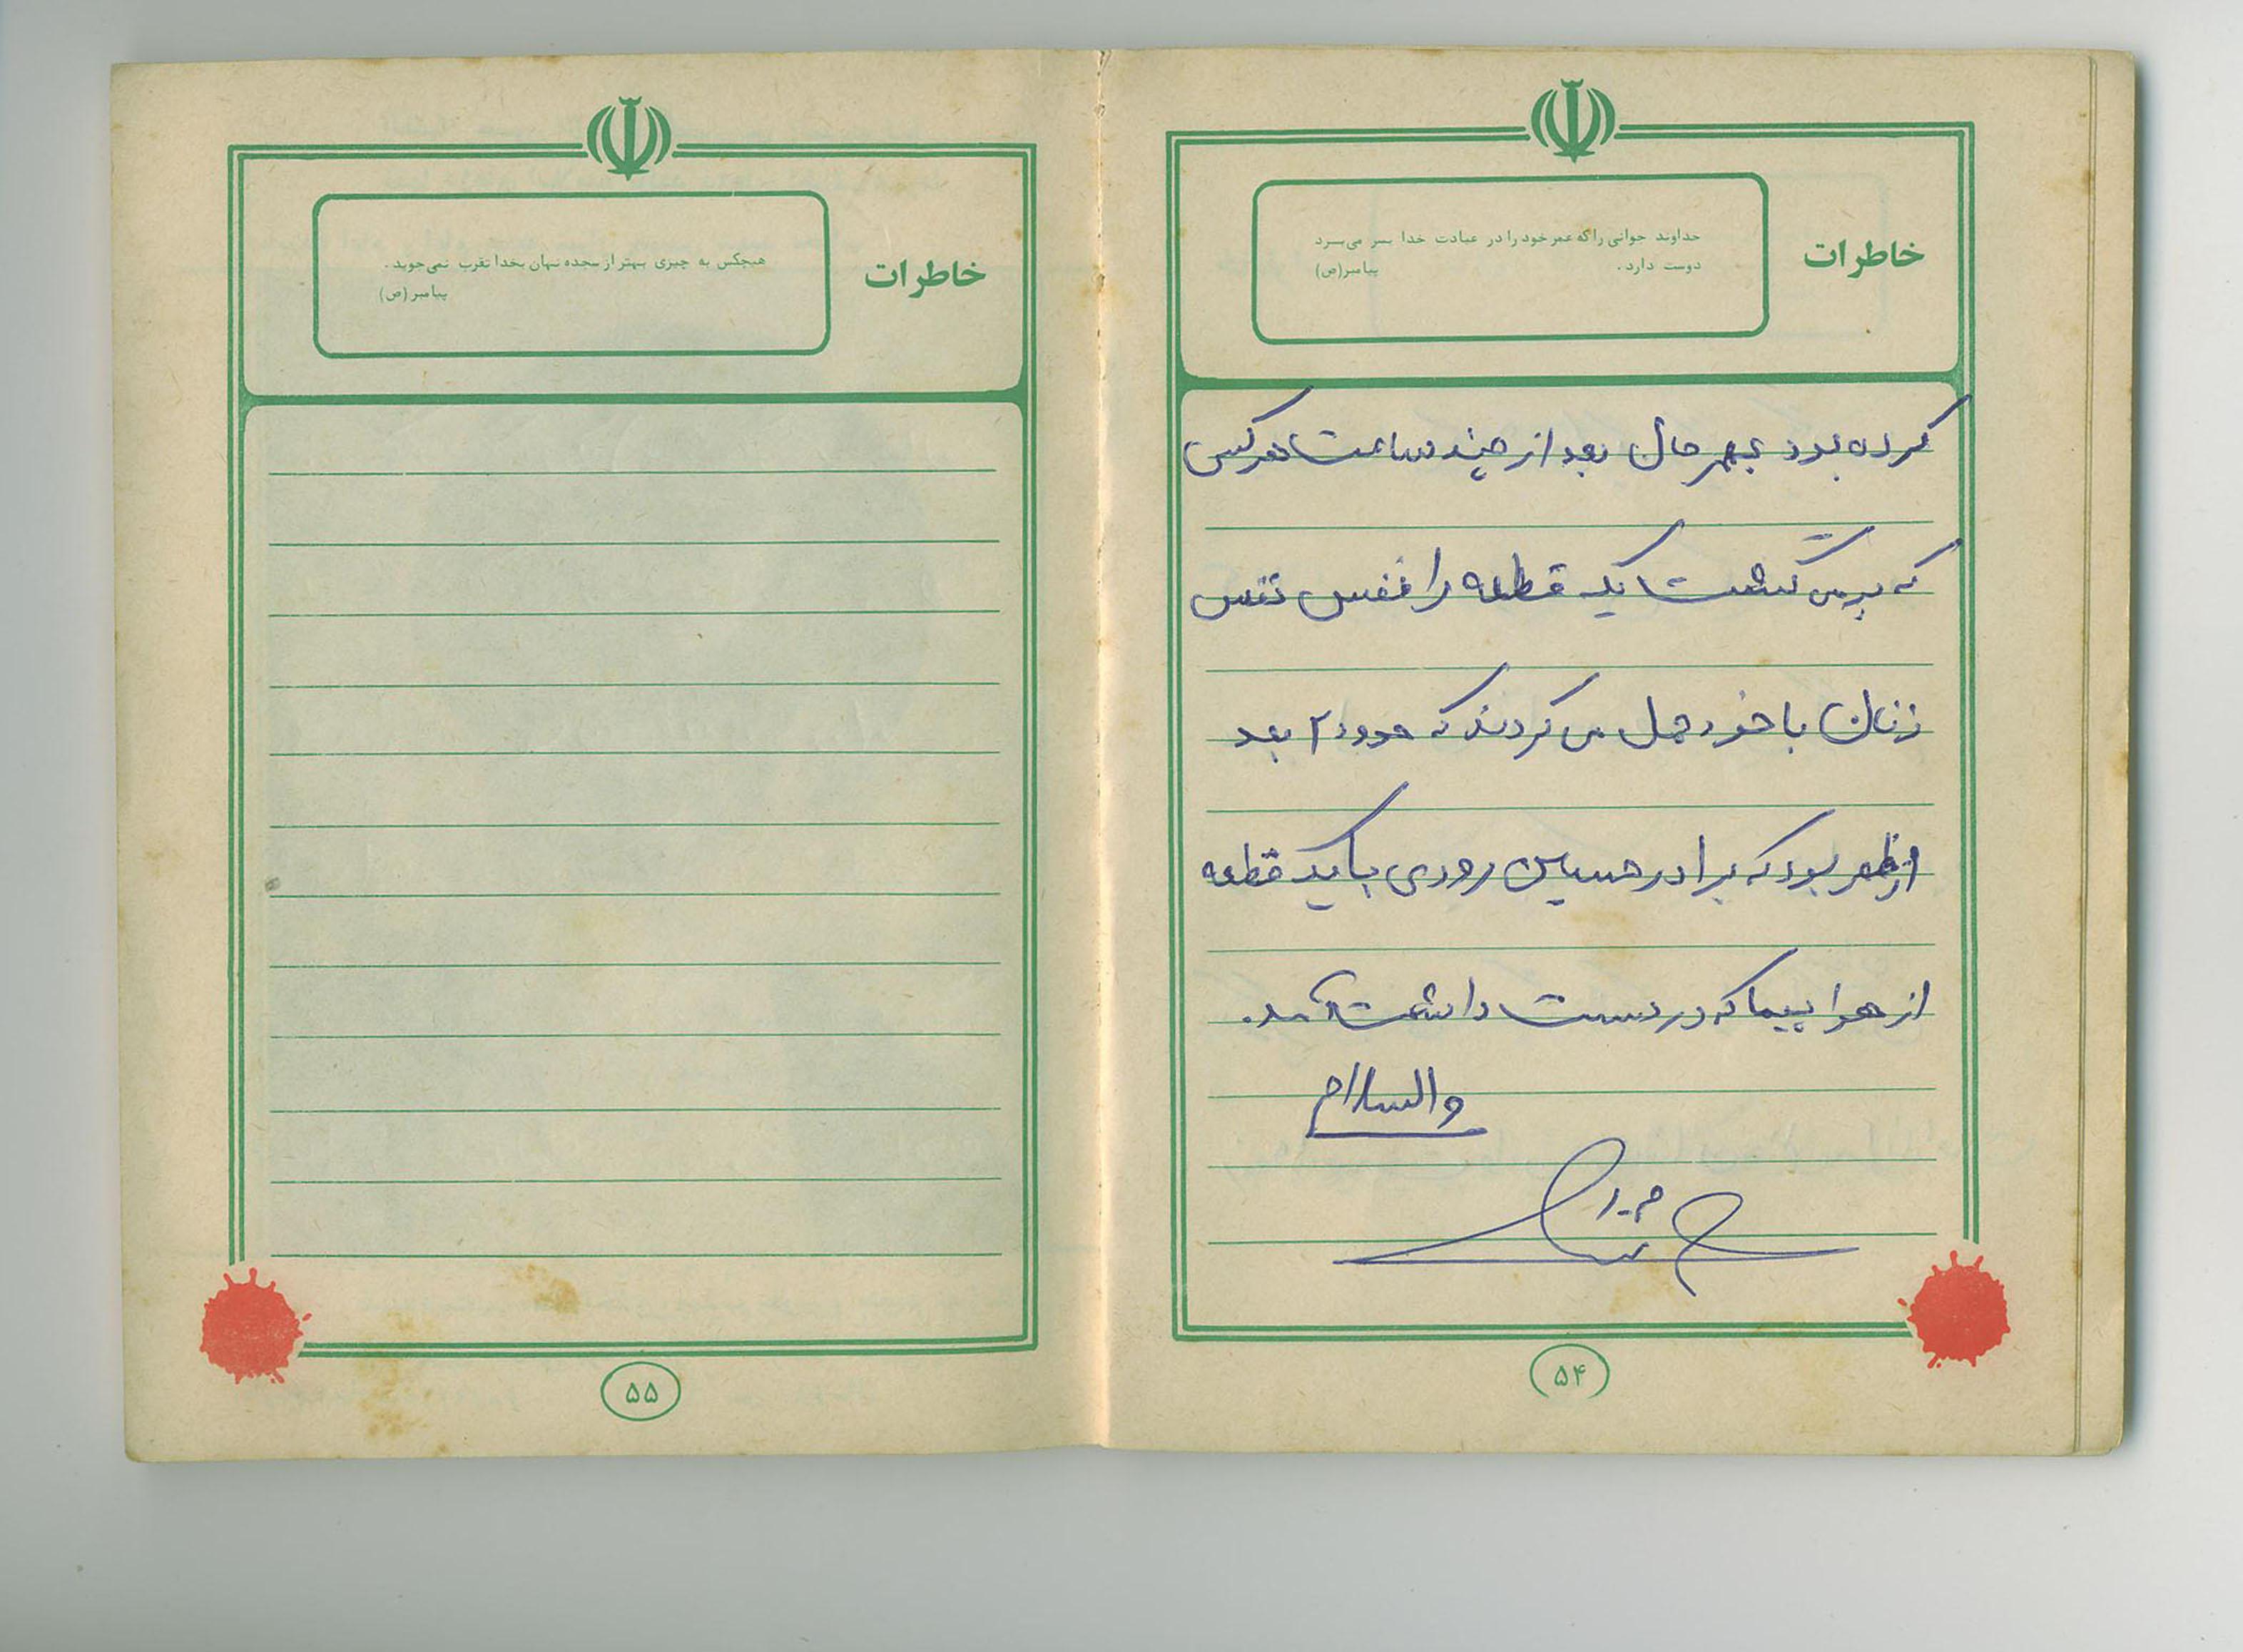 خاطرات
خداوند جوانی را که عمر خود را در عبادت خدا بسر می‌برد
دوست دارد. پیامبر(ص)
کرده بود بهر حال بعد از چند ساعت هر کس
که برمی گشت یک قطعه را نفس نفس
زنان با خود حمل می کردند که حدود ۲ بعد
از ظهر بود که برادر حسین رودی با یک قطعه
از هوا پیما که در دست داشت آمد.
والسلام
۵۴
خاطرات
هیچکس به چیزی بهتر از سجده نهان بخدا تقرب نمی‌جوید.
پیامبر (ص)
۵۵